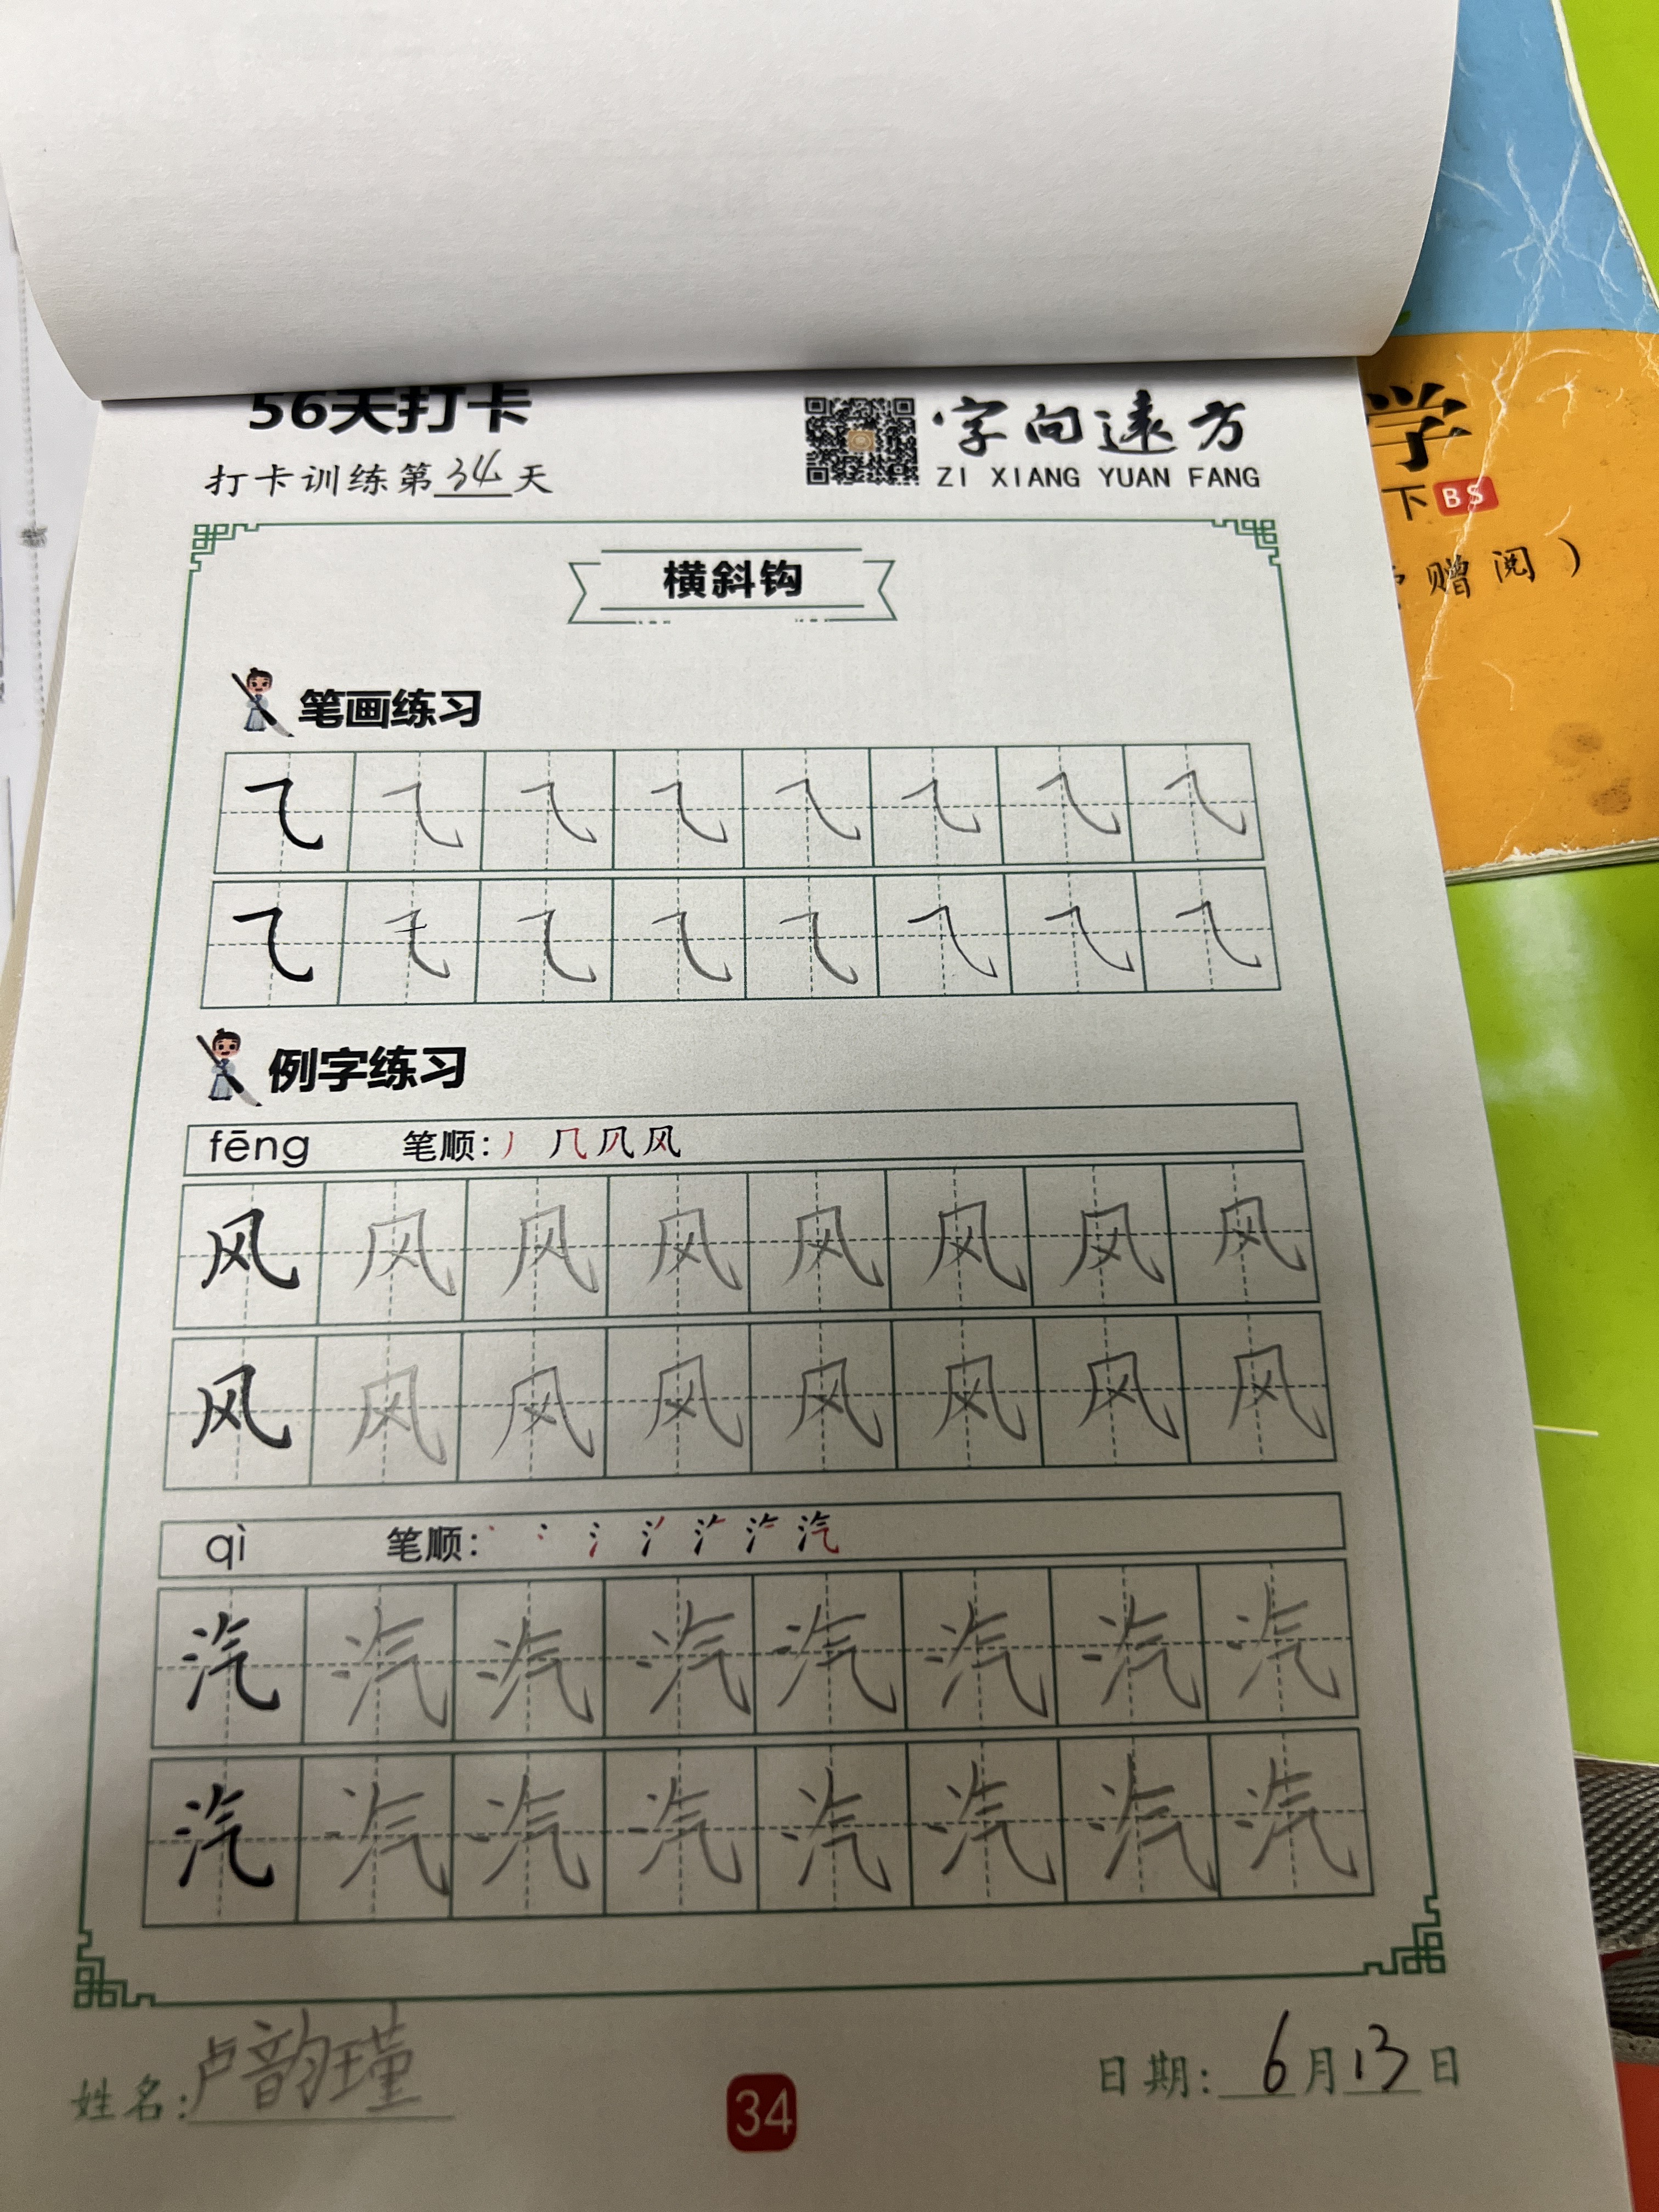 56天打卡
打卡训练第34天
字向远方
ZI XIANG YUAN FANG
学
下 BS
赠阅）
横斜钩
笔画练习
⺄ ⺄ ⺄ ⺄ ⺄ ⺄ ⺄ ⺄
⺄ ⺄ ⺄ ⺄ ⺄ ⺄ ⺄ ⺄
例字练习
fēng 笔顺：丿 ⺇ 风
风 风 风 风 风 风 风 风
风 风 风 风 风 风 风 风
qì 笔顺：丶 冫 氵 汽
汽 汽 汽 汽 汽 汽 汽 汽
汽 汽 汽 汽 汽 汽 汽 汽
姓名：卢韵瑾
34
日期：6月13日